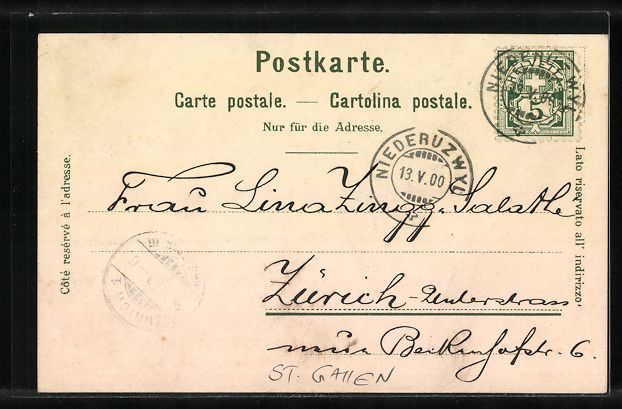 Postkarte.
Carte postale. — Cartolina postale.
Nur für die Adresse.
HELVETIA
5
NIEDERUZWYL
NIEDERUZWYL
13.V.00
Côté reservé à l'adresse.
Lato riservato all' indirizzo
Frau Lina Zingg-Salathe
Zürich-Unterstrass
Beckenhofstr. 6.
ST. GALLEN